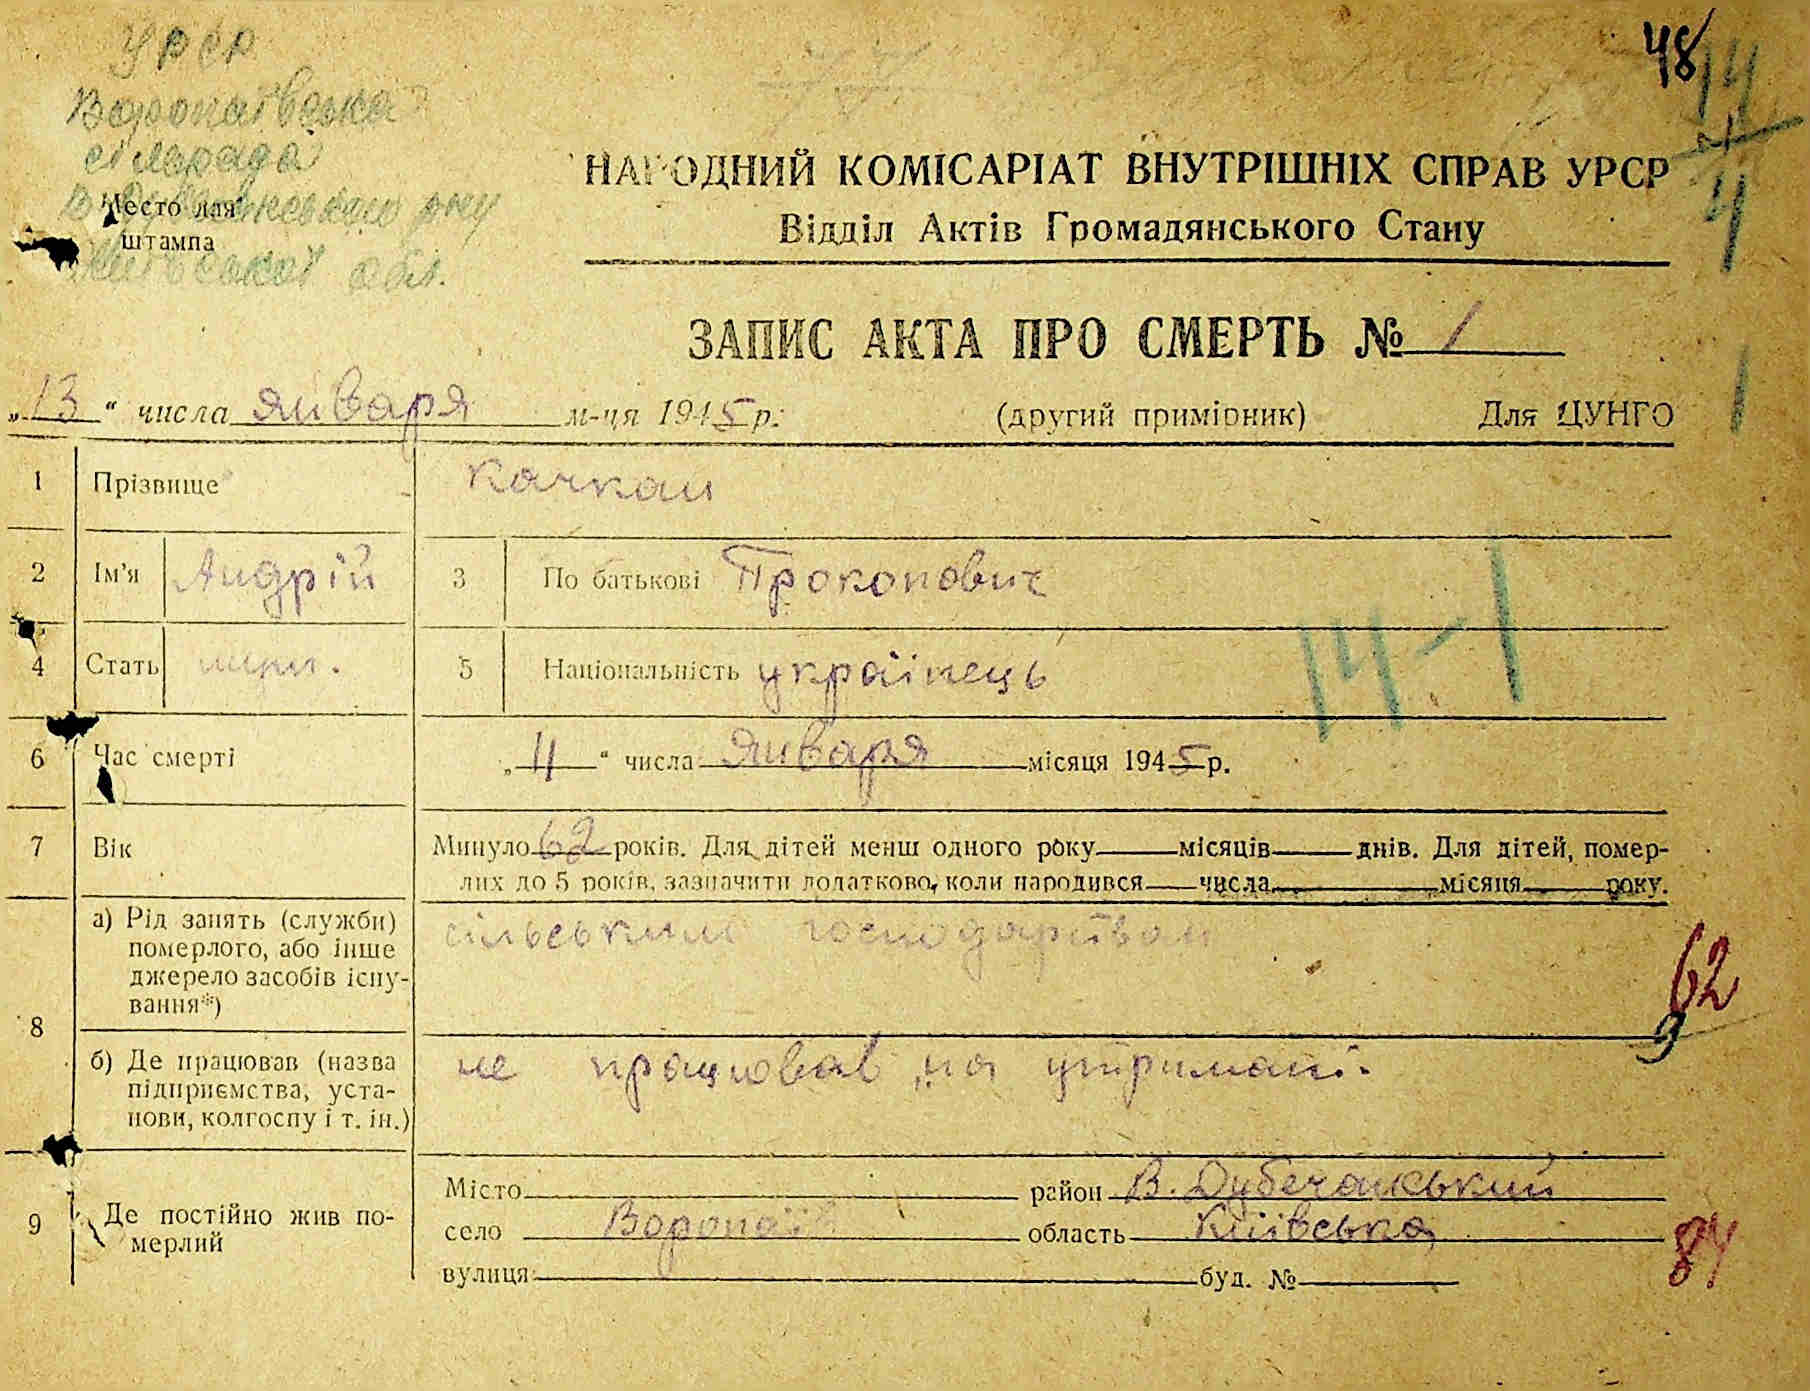 УРСР
Воропаївська
сільрада
В. Дубечанського р-ну
Київської обл.
Место для
штампа
48
14
4
НАРОДНИЙ КОМІСАРІАТ ВНУТРІШНІХ СПРАВ УРСР
Відділ Актів Громадянського Стану
ЗАПИС АКТА ПРО СМЕРТЬ № 1
„13“ числа января м-ця 1945 р. (другий примірник) Для ЦУНГО
1 Прізвище Качкан
2 Ім’я Андрій 3 По батькові Прокопович
4 Стать муж. 5 Національність українець
14-1
6 Час смерті „11“ числа января місяця 1945 р.
7 Вік Минуло 62 років. Для дітей менш одного року місяців днів. Для дітей, помер-
лих до 5 років, зазначити додатково, коли народився числа місяця року.
8 а) Рід занять (служби) померлого, або інше джерело засобів існу-вання*) сільським господарством
62
9
б) Де працював (назва підприємства, уста-нови, колгоспу і т. ін.) не працював, на утримані.
9 Де постійно жив по-мерлий
Місто район В. Дубечанський
село Воропаїв область Київська
вулиця буд. №
84